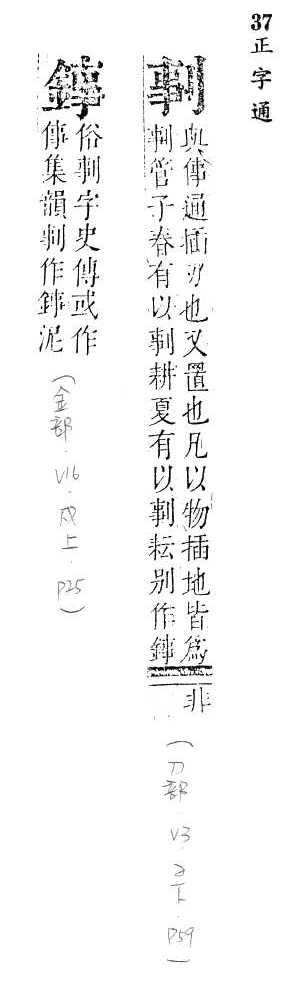 37 正字通
剚
與傳通插刀也又置也凡以物插地皆為
剚管子春有以剚耕夏有以剚耘別作鏄 非
(刀部.V3.子下.P59)
鏄
俗剚字史傳或作
倳集韻剚作鏄泥
(金部.V16.戌上.P25)